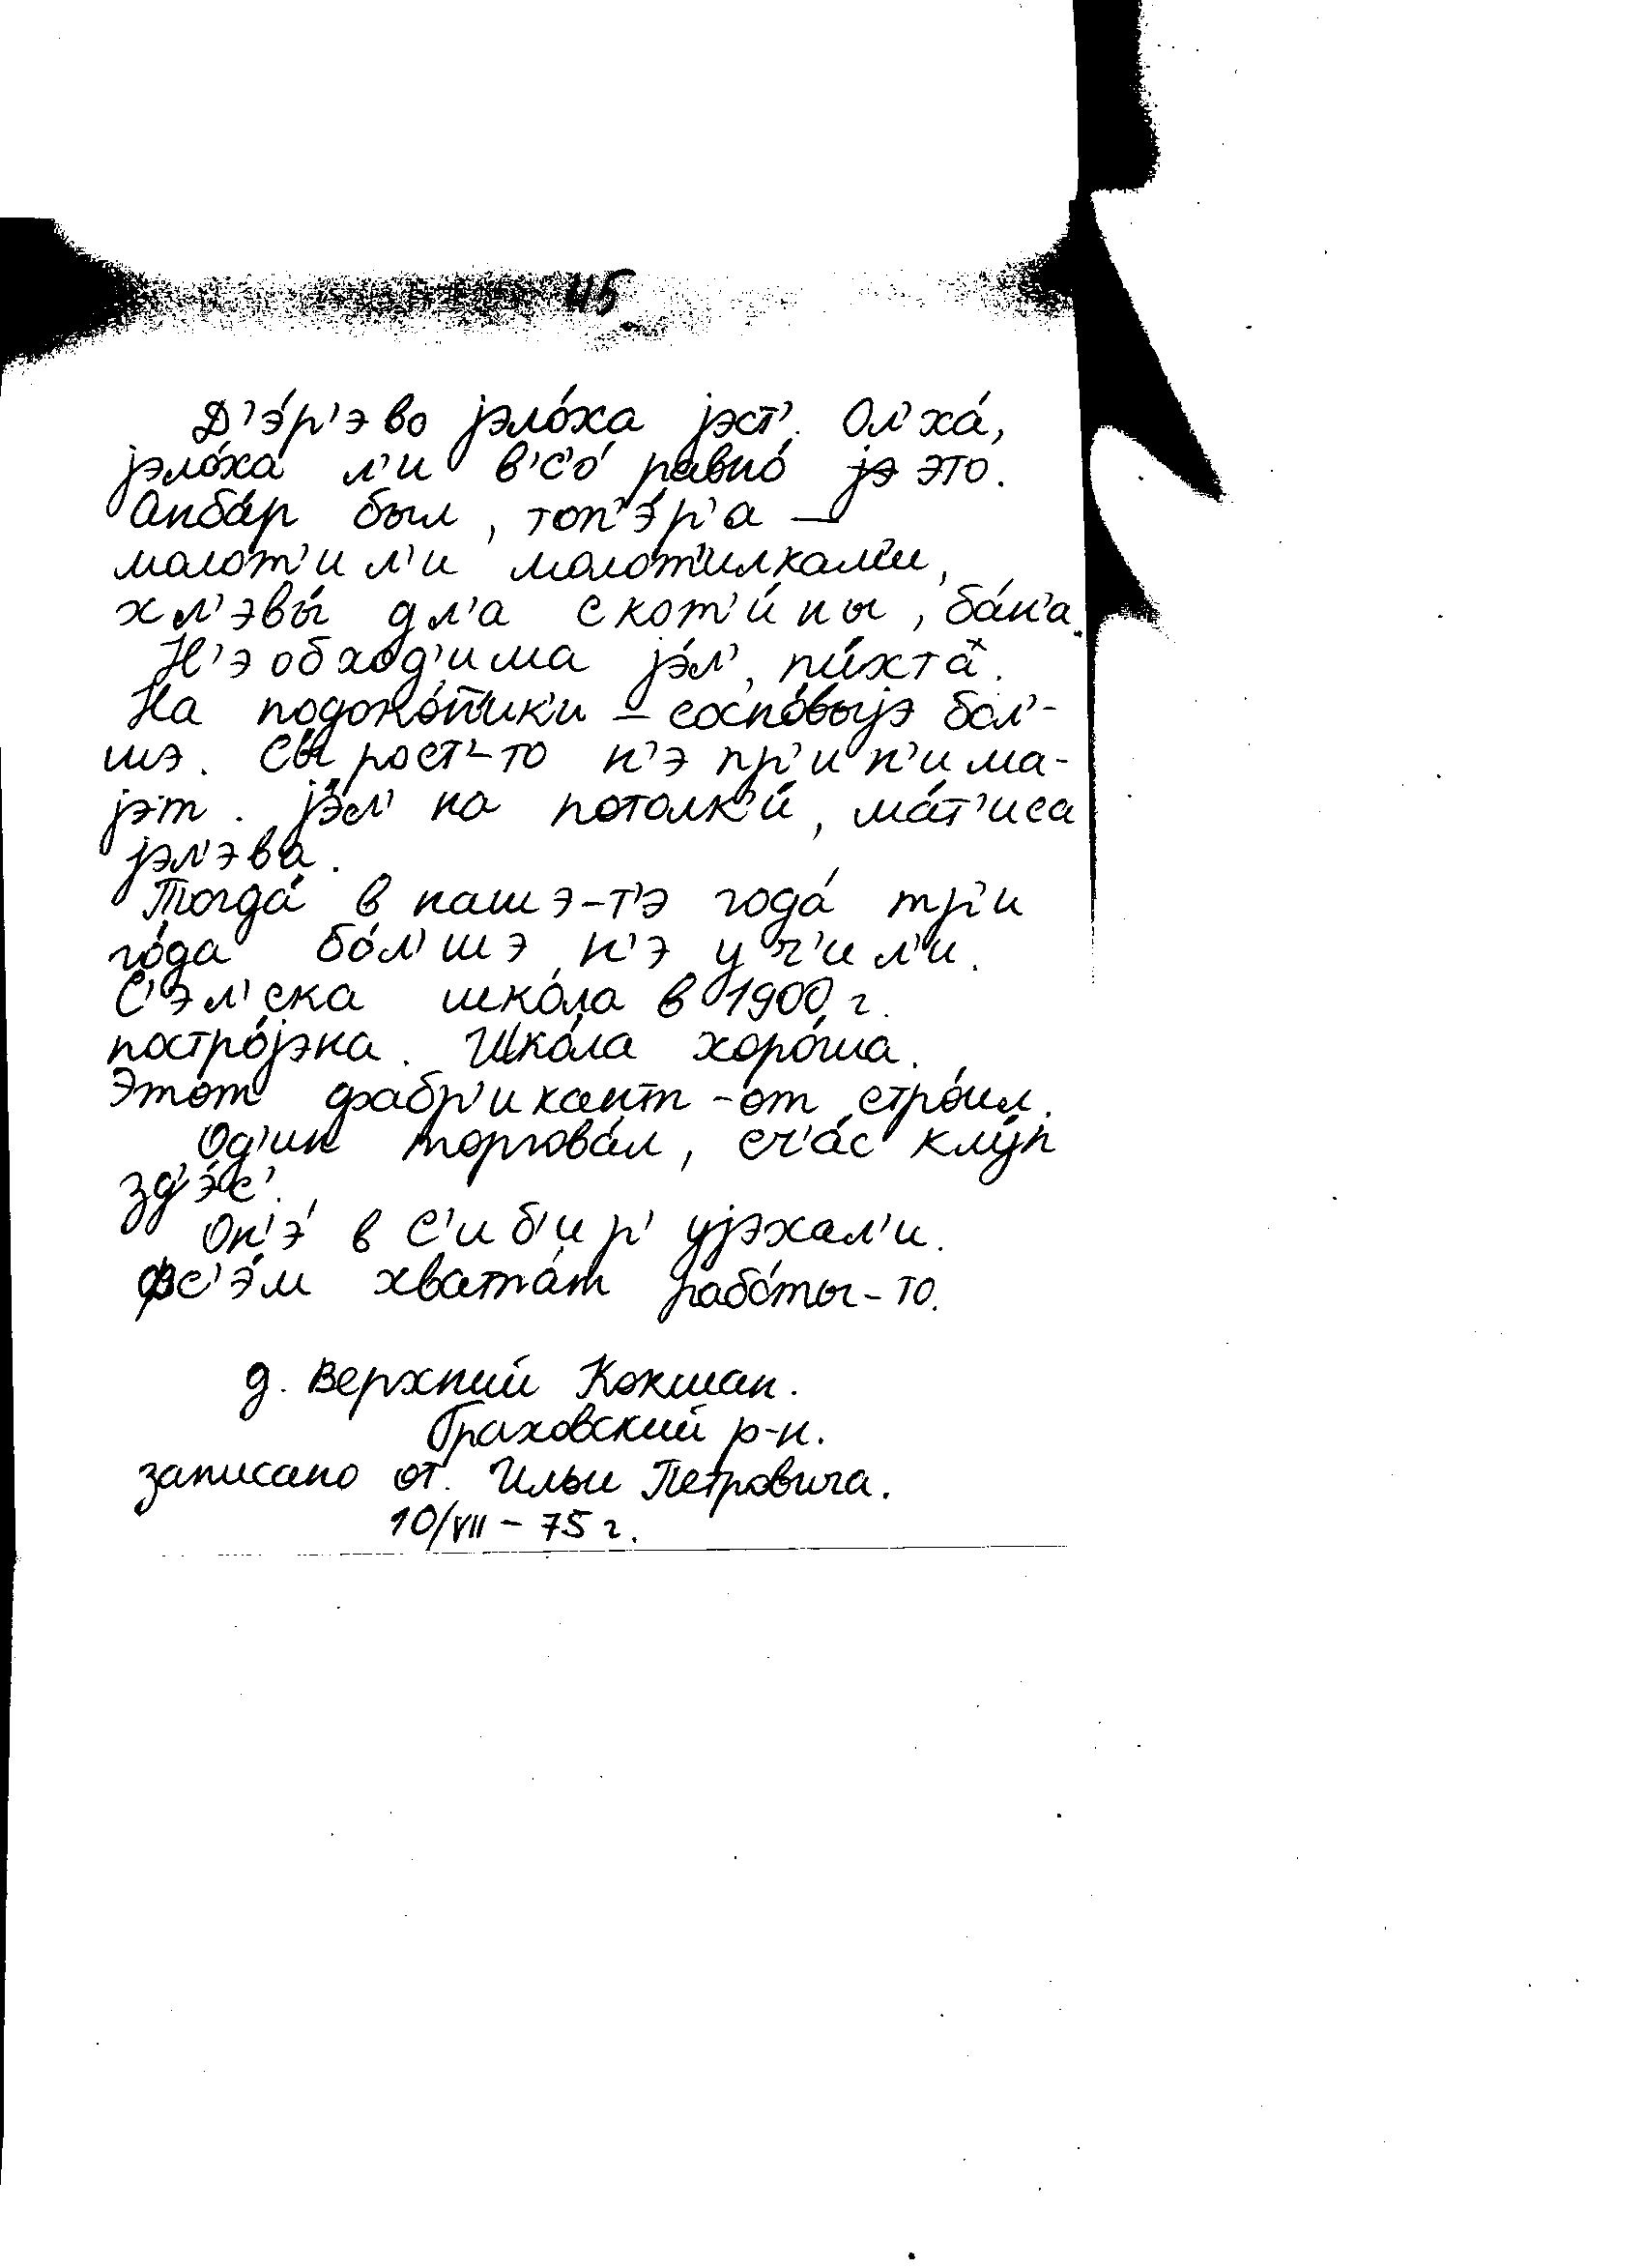 45
Д'э́р'эво јэло́ха јэст'. Ол'ха́,
јэло́ха л'и в'с'о́ равно́ јэ это.
Анба́р был, топ'э́р'а —
молот'и л'и молот'илкам'и,
хл'эвы́ дл'а скот'и́ны, ба́н'а.
Н'эобход'има јэ́л', пи́хта.
На подоко́н'ик'и – сосно́выјэ бол'-
шэ. Сы́рост'-то н'э пр'ин'има-
јэт. јэ́л' на потолк'и́, ма́т'иса
јэл'эва.
Тогда́ в нашэ-т'э года́ тр'и
го́да бо́л'шэ н'э уч'ил'и.
С'эл'ска шко́ла в 1900 г.
постро́јэна. Шко́ла хоро́ша.
Этот фабр'икант-от стро́ил.
Од'ин торгова́л, сч'а́с клу́п
зд'э́с'.
Он'э́ в С'иб'ир' ујэхал'и.
фс'э́м хвата́т рабо́ты-то.
д. Верхний Кокшан.
Граховский р-н.
записано от. Ильи Петровича.
10/VII – 75 г.